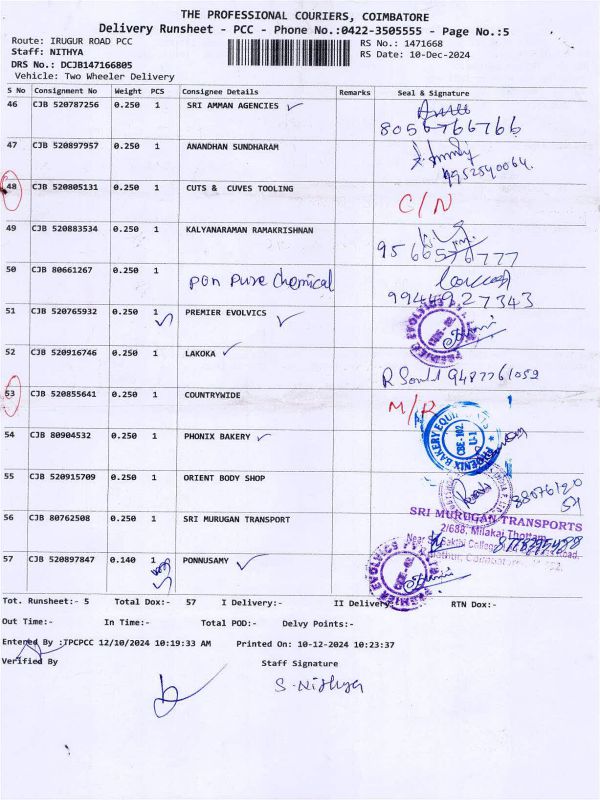 THE PROFESSIONAL COURIERS, COIMBATORE
Delivery Runsheet - PCC - Phone No.:0422-3505555 - Page No.:5
Route: IRUGUR ROAD PCC RS No.: 1471668
Staff: NITHYA RS Date: 10-Dec-2024
DRS No.: DCJB147166805
Vehicle: Two Wheeler Delivery
S No Consignment No Weight PCS Consignee Details Remarks Seal & Signature
46 CJB 520787256 0.250 1 SRI AMMAN AGENCIES
8056766766
47 CJB 520897957 0.250 1 ANANDHAN SUNDHARAM
9952540064.
48 CJB 520805131 0.250 1 CUTS & CUVES TOOLING
C/N
49 CJB 520883534 0.250 1 KALYANARAMAN RAMAKRISHNAN
50 CJB 80661267 0.250 1 pon pure chemical
9944927343
51 CJB 520765932 0.250 1 PREMIER EVOLVICS
PREMIER EVOLVICS
52 CJB 520916746 0.250 1 LAKOKA
9487761059
53 CJB 520855641 0.250 1 COUNTRYWIDE
M/R
54 CJB 80904532 0.250 1 PHONIX BAKERY
PHOENIX BAKERY EQUIPMENTS
55 CJB 520915709 0.250 1 ORIENT BODY SHOP
56 CJB 80762508 0.250 1 SRI MURUGAN TRANSPORT
SRI MURUGAN TRANSPORTS
2/688, Milakai Thottam,
57 CJB 520897847 0.140 1 PONNUSAMY
PREMIER EVOLVICS
Tot. Runsheet:- 5 Total Dox:- 57 I Delivery:- II Delivery: RTN Dox:-
Out Time:- In Time:- Total POD:- Delvy Points:-
Entered By :TPCPCC 12/10/2024 10:19:33 AM Printed On: 10-12-2024 10:23:37
Verified By Staff Signature
S. Nithya